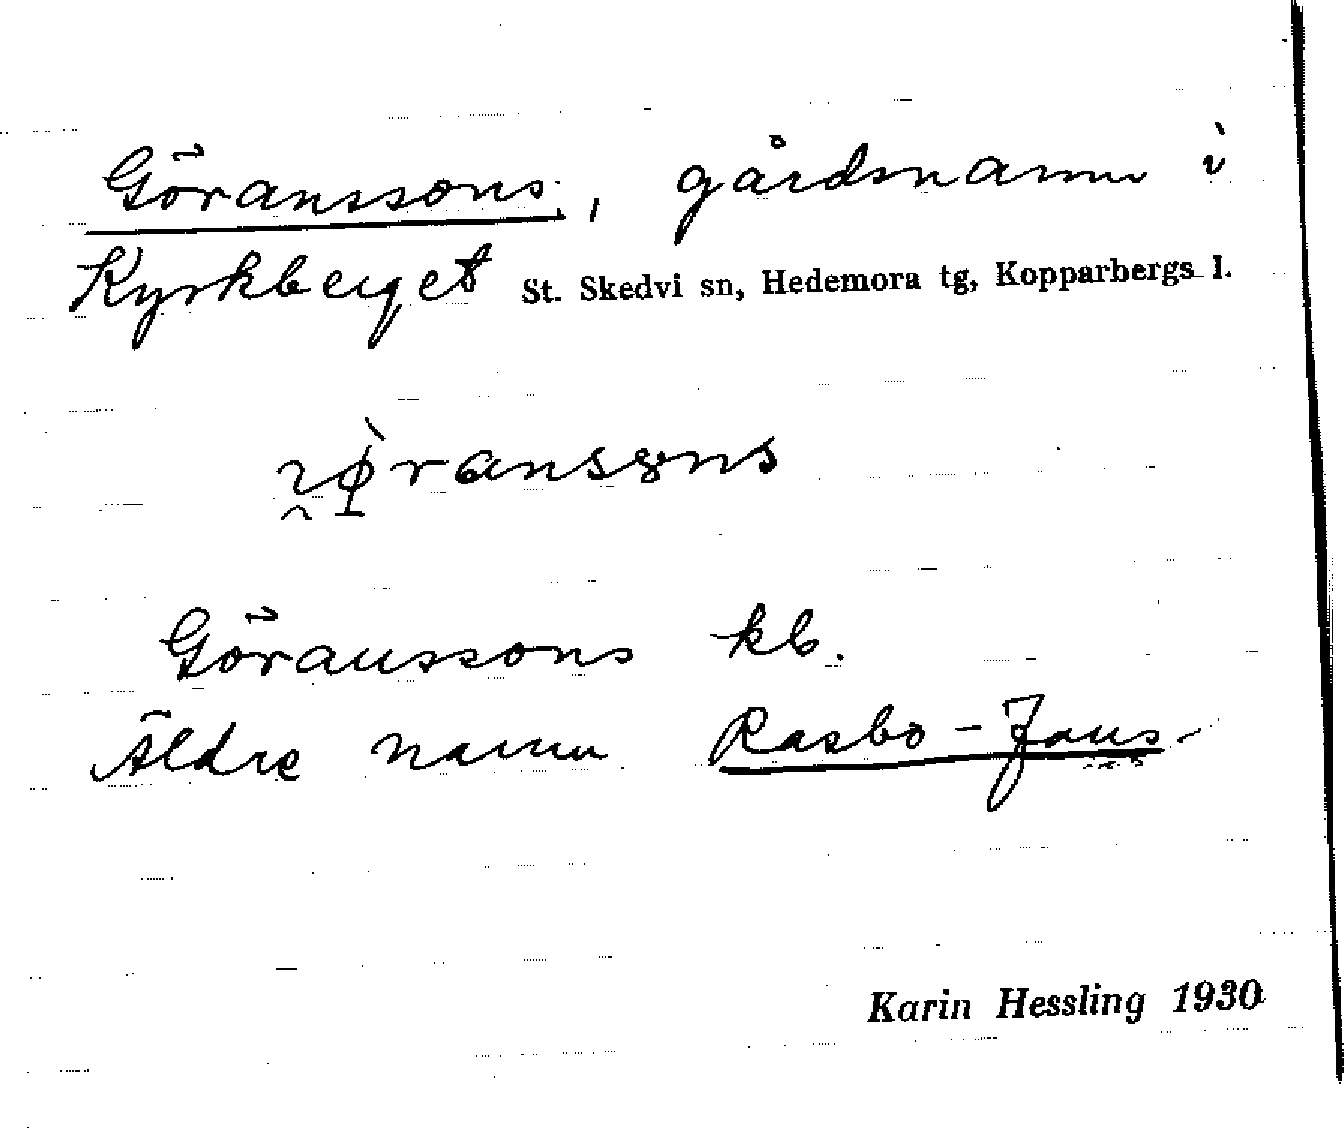 Göranssons, gårdsnamn i
Kyrkberget St. Skedvi sn, Hedemora tg, Kopparbergs l.
Göranssons kb.
Äldre namn Rasbo-Jans
Karin Hessling 1930